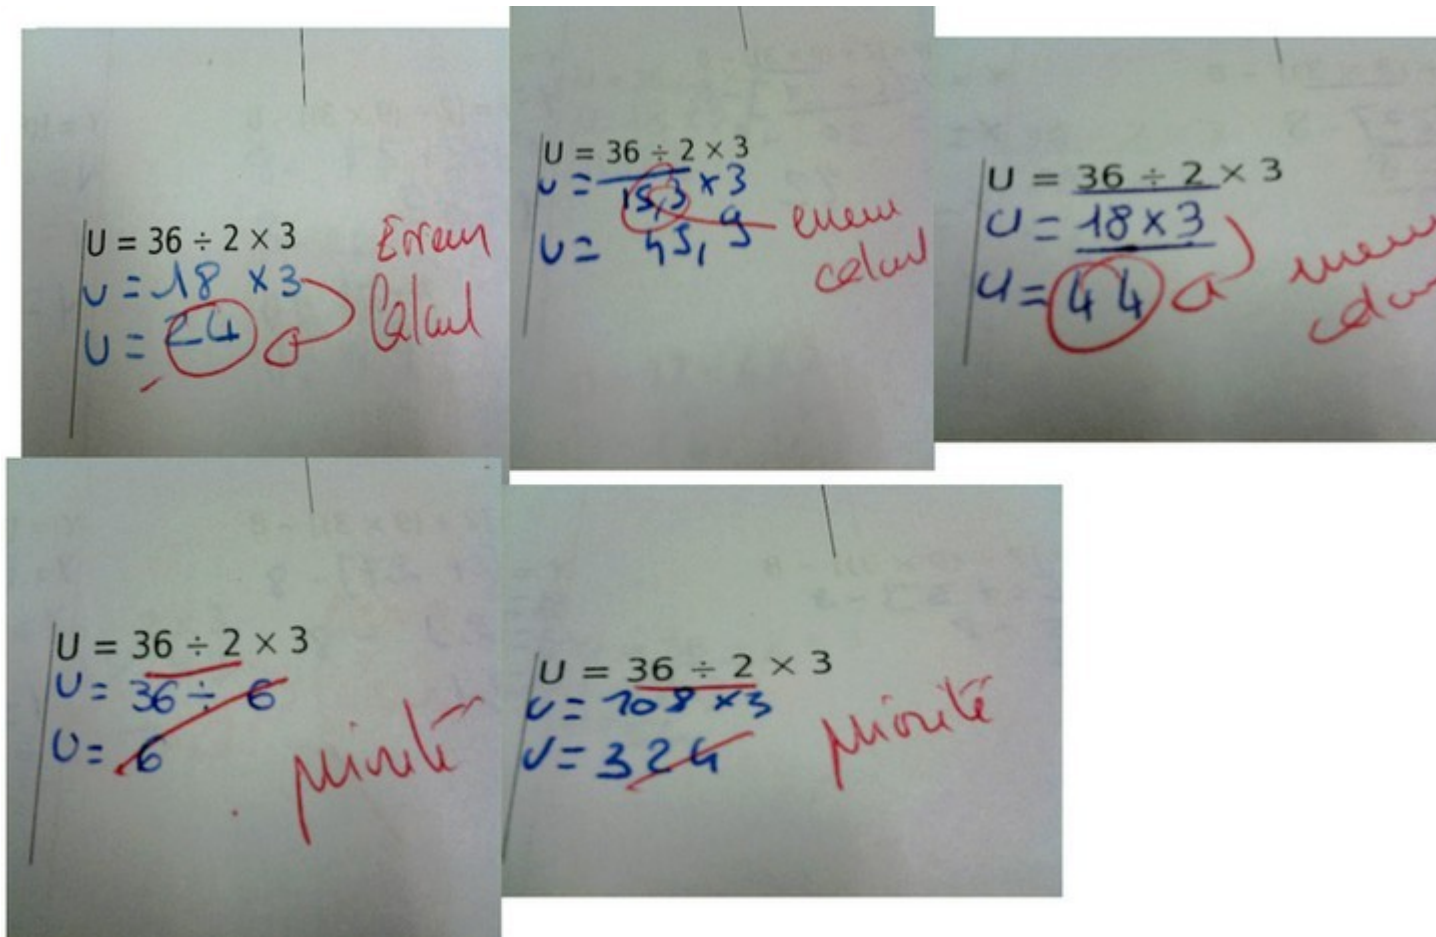 U = 36 ÷ 2 × 3
U = 18 × 3
U = 24
Erreur
Calcul
U = 36 ÷ 2 × 3
U = 15,3 × 3
U = 45,9
erreur
calcul
U = 36 ÷ 2 × 3
U = 18 × 3
U = 44
erreur
calcul
U = 36 ÷ 2 × 3
U = 36 ÷ 6
U = 6
priorité
U = 36 ÷ 2 × 3
U = 108 × 3
U = 324
priorité